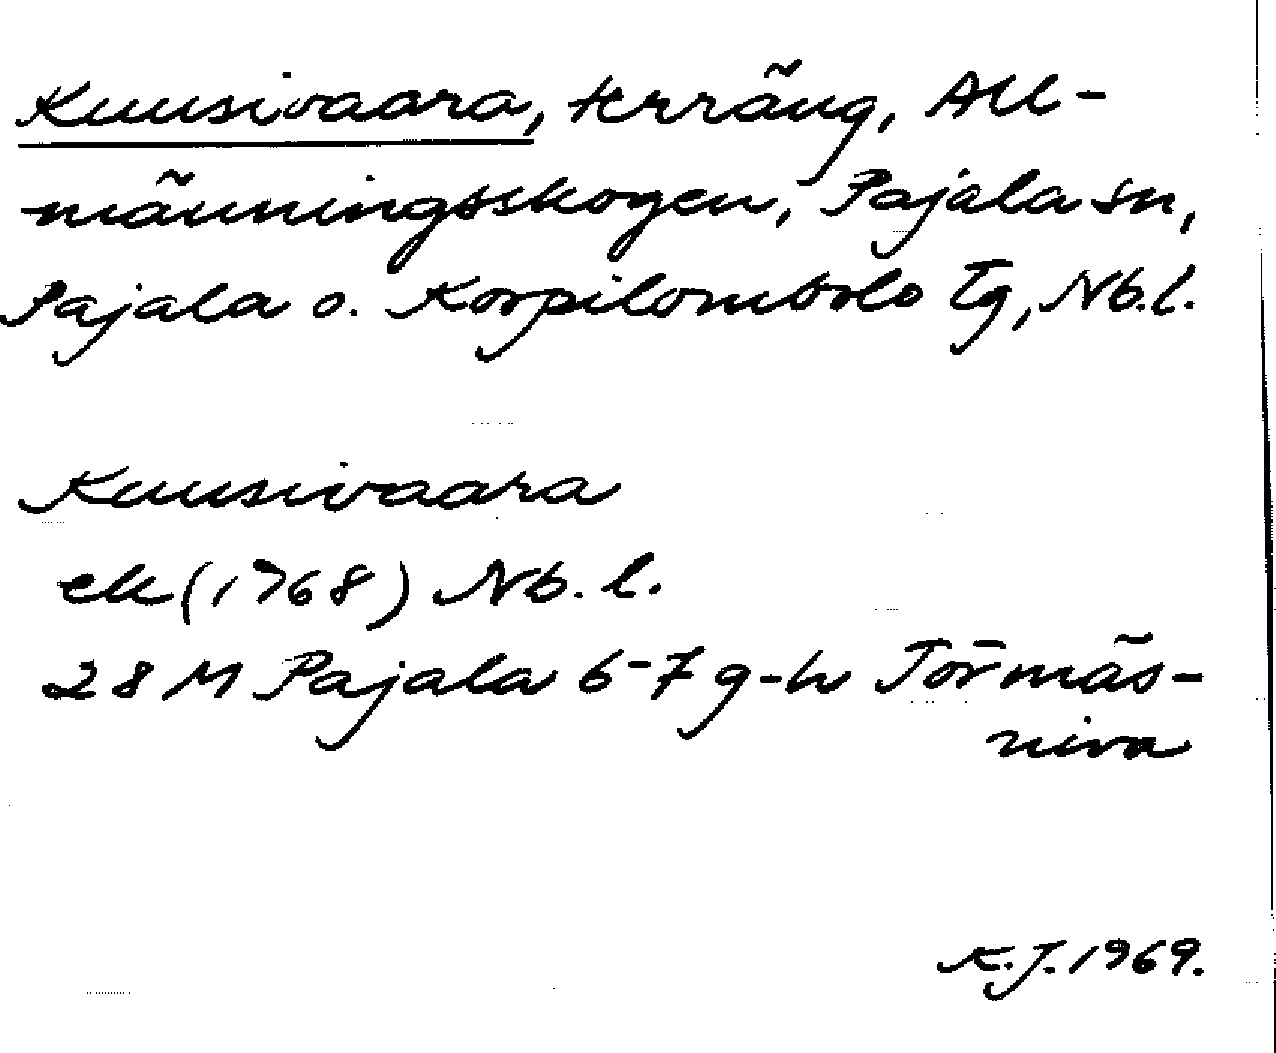 Kuusivaara, terräng, All-
männingsskogen, Pajala sn,
Pajala o. Korpilombolo tg, Nb.l.
Kuusivaara
ek (1968) Nb. l.
28 M Pajala 6-7 g-h Törmäs-
niva
K.J. 1969.